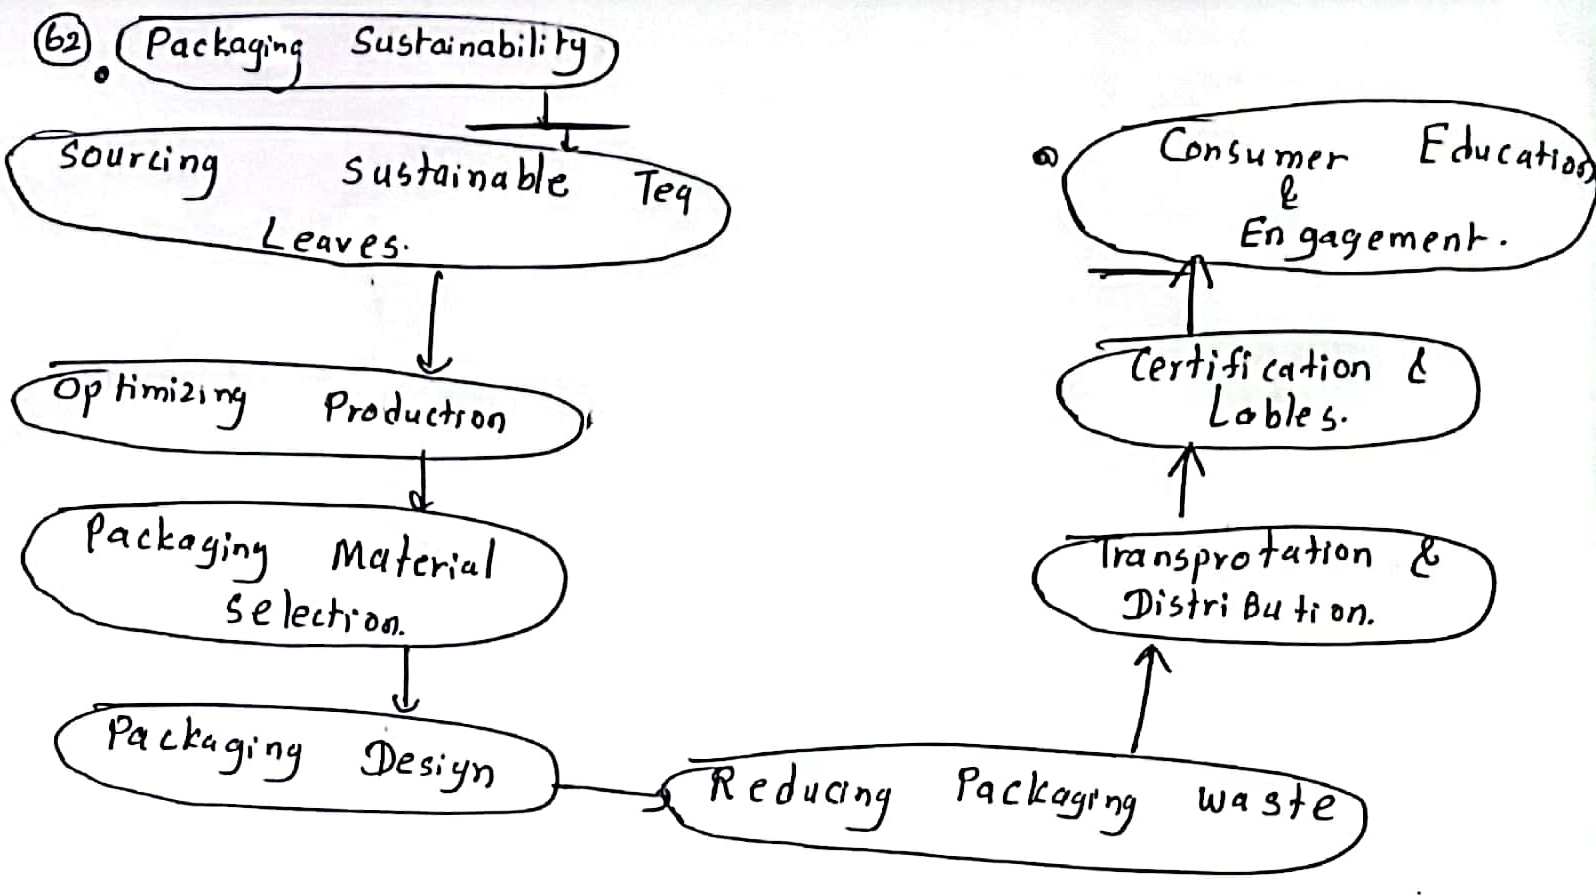 62. Packaging Sustainability
Sourcing Sustainable Tea
Leaves.
Optimizing Production
Packaging Material
Selection.
Packaging Design
Reducing Packaging waste
Transprotation &
Distribution.
Certification &
Lables.
Consumer Education
&
Engagement.